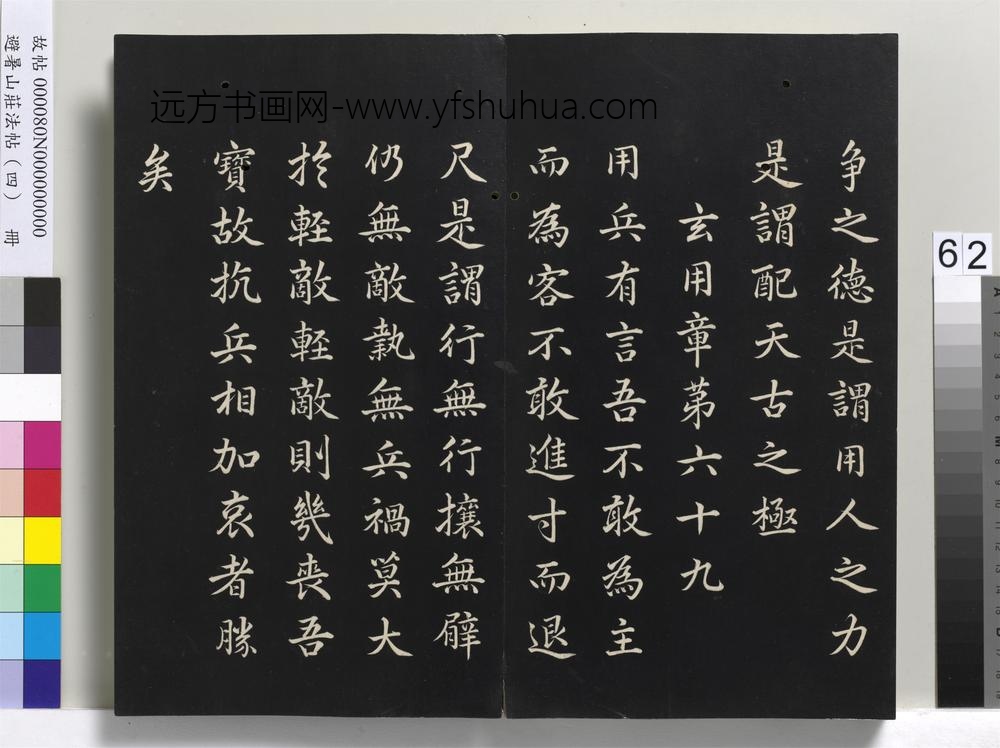 争之德是謂用人之力
是謂配天古之極
玄用章第六十九
用兵有言吾不敢為主
而為客不敢進寸而退
尺是謂行無行攘無臂
仍無敵執無兵禍莫大
扵輕敵輕敵則幾喪吾
寶故抗兵相加哀者勝
矣
远方书画网-www.yfshuhua.com
故帖 000080N000000000
避暑山莊法帖（四） 冊
62